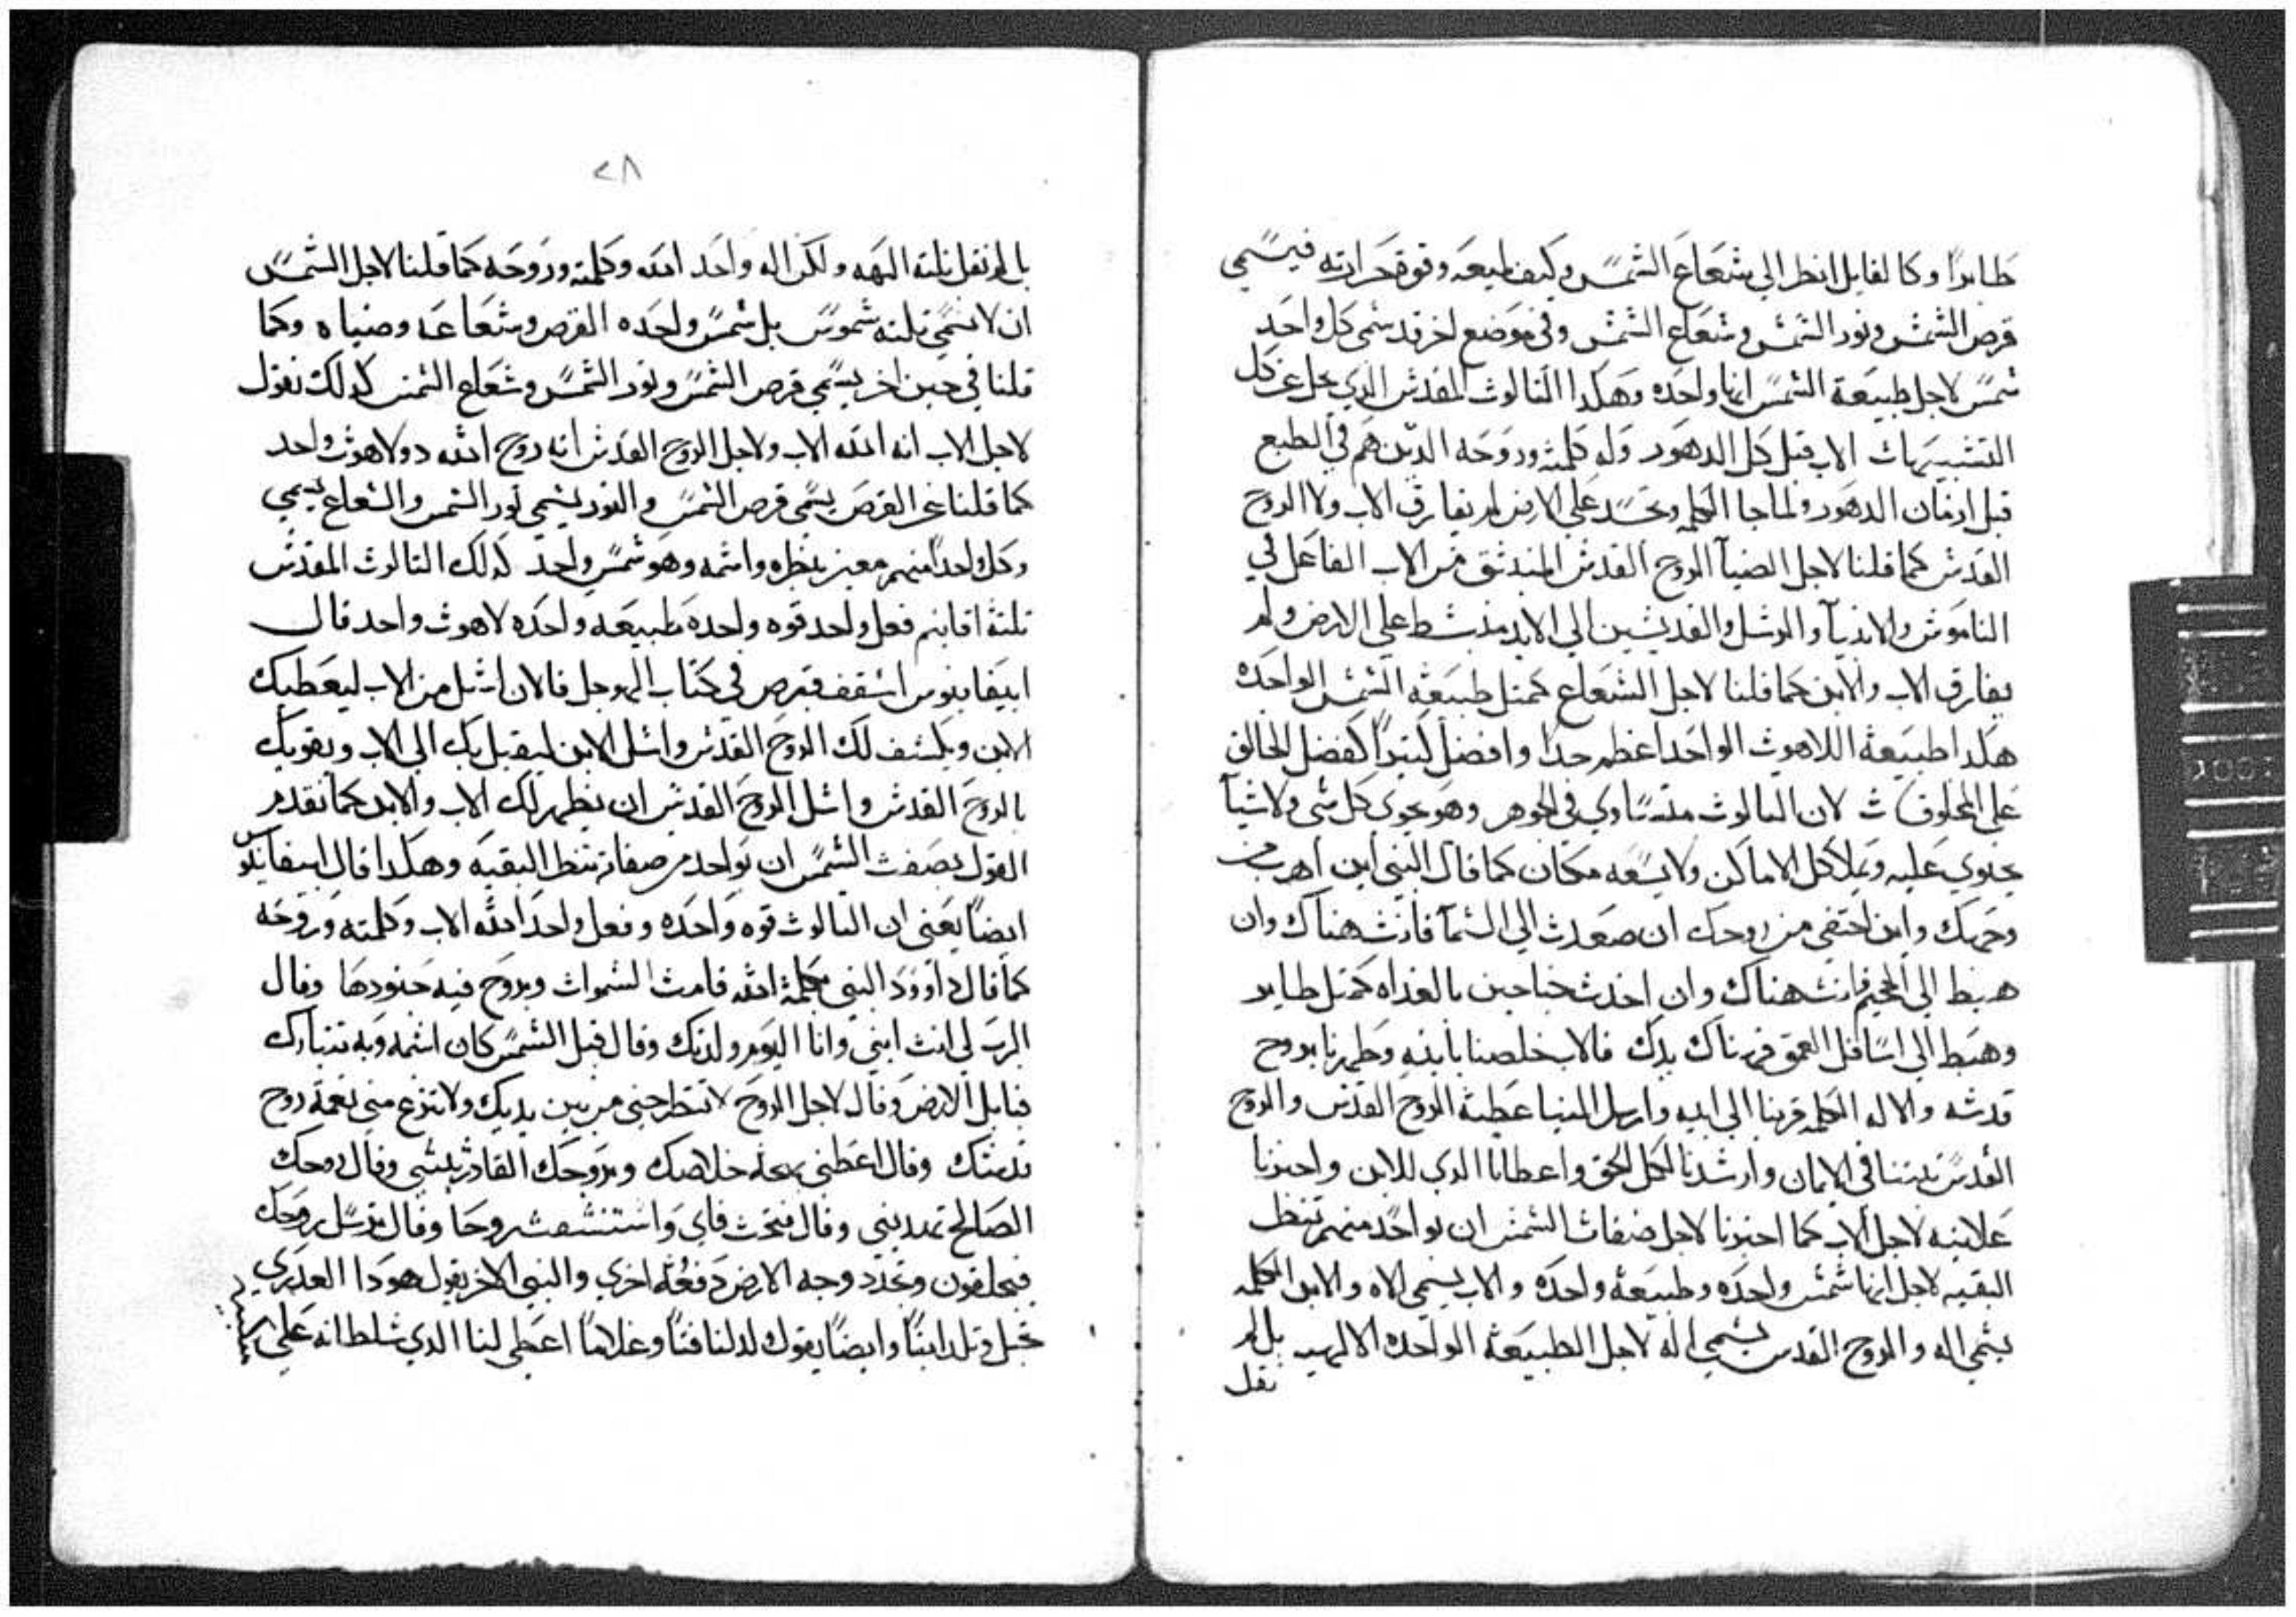 طايرا وكالقايل انظر الي شعاع الشمس وكيف طبيعه وقوة حرارته فيسمي
قرص الشمس ونور الشمس وشعاع الشمس وفي موضع اخر قد سمي كل واحد
شمس لاجل طبيعة الشمس انها واحده وهكدا التالوت المقدس الدي يجل عن كل
التشبيهات الاب قبل كل الدهور وله كلمته وروحه الدين هم في الطبع
قبل ازمان الدهور ولما جا الكلمه وتجسد علي الارض لم يفارق الاب ولا الروح
القدس كما قلنا لاجل الضيا الروح القدس المنبتق من الاب الفاعل في
الناموس والانبيا والرسل والقديسين الي الابد منبسط علي الارض ولم
يفارق الاب والابن كما قلنا لاجل الشعاع كمتل طبيعة الشمس الواحده
هكدا طبيعة اللاهوت الواحد اعظم جدا وافضل كتيرا كفضل الخالق
علي المخلوقات لان التالوت متساوي في الجوهر وهو يحوي كل شي ولا شيا
يحتوي عليه ويملا كل الاماكن ولا يسعه مكان كما قال النبي اين اهرب من
وجهك واين اختفي من روحك ان صعدت الي السما فانت هناك وان
هبط الي الجحيم فانت هناك وان اخدت جناحين بالغداه كمتل طاير
وهبط الي اسافل العمق فهناك يدك فالاب خلصنا بابنه وطهرنا بروح
قدسه والاله الكلمه قربنا الي ابيه وارسل الينا عطية الروح القدس والروح
القدس تبتنا في الايمان وارشدنا لكل الحق واعطانا الدي للابن واخبرنا
علانيه لاجل الاب كما اخبرنا لاجل صفات الشمس ان بواحد منهم تنظر
البقيه لاجل انها شمس واحده وطبيعة واحده والاب يسمي الاه والابن الكلمه
يسمي اله والروح القدس يسمي اله لاجل الطبيعة الواحده الالهيه بل لم
نقل
٢٨
بل لم نقل تلتة الهه ولكن اله واحد الله وكلمته وروحه كما قلنا لاجل الشمس
ان لا نسمي تلتة شموس بل شمس واحده القرص وشعاعه وضياه وكما
قلنا في حين اخر يسمي قرص الشمس ونور الشمس وشعاع الشمس كدلك نقول
لاجل الاب انه الله الاب ولاجل الروح القدس انه روح الله دو لاهوت واحد
كما قلنا عن القرص يسمي قرص الشمس والنور يسمي نور الشمس والشعاع يسمي
وكل واحدا منهم معبر بنظره واسمه وهو شمس واحد كدلك التالوت المقدس
تلتة اقانيم فعل واحد قوه واحده طبيعه واحده لاهوت واحد قال
ابيفانيوس اسقف قبرص في كتاب المهوجل فالان اسل من الاب ليعطيك
الابن ويكشف لك الروح القدس واسل الابن ليقبل بك الي الاب ويقويك
بالروح القدس واسل الروح القدس ان يظهر لك الاب والابن كما تقدم
القول بصفت الشمس ان بواحد من صفاته تنظر البقيه وهكدا قال ابيفانيوس
ايضا يعني ان التالوت قوه واحده وفعل واحد الله الاب وكلمته وروحه
كما قال داوود النبي بكلمة الله قامت السموات وبروح فيه جنودها وقال
الرب لي انت ابني وانا اليوم ولدتك وقال قبل الشمس كان اسمه وبه تتبارك
قبايل الارض وقال لاجل الروح لا تطرحني من بين يديك ولا تنزع مني نعمة روح
قدسك وقال اعطني بهجة خلاصك وبروحك القادر تبتني وقال روحك
الصالح تهديني وقال فتحت فاي واستنشقت روحا وقال ترسل روحك
فيخلقون وتجدد وجه الارض دفعة اخري والنبي الاخر يقول هودا العدري
تحبل وتلد ابنا وايضا يقول ولد لنا فتا وغلاما اعطي لنا الدي سلطانه علي